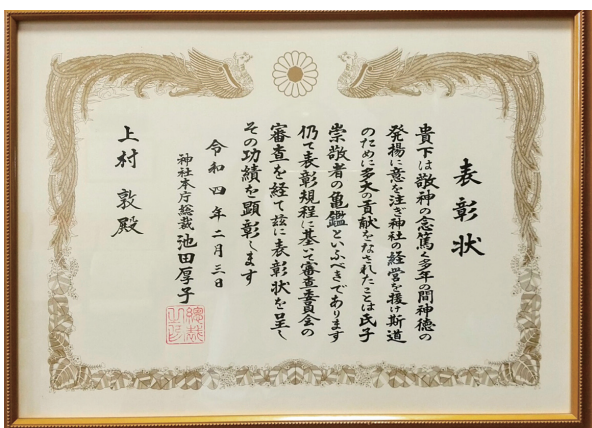 表彰状
貴下は敬神の念篤く多年の間神徳の
発揚に意を注ぎ神社の経営を援け斯道
のために多大の貢献をなされたことは氏子
崇敬者の亀鑑といふべきであります
仍て表彰規程に基いて審査委員会の
審査を経て玆に表彰状を呈し
その功績を顕彰します
令和四年二月三日
神社本庁総裁 池田厚子
總裁之印
上村 敦 殿